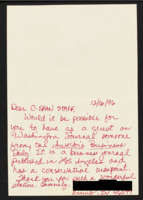 12/6/96
Dear C-SPAN STAFF,
Would it be possible for
you to have as a guest on
Washington Journal someone
from the Investor's Business
Daily. It is a business journal
published in Los Angeles and
has a conservative viewpoint.
Thank you for such a wonderful
station. Sincerely,